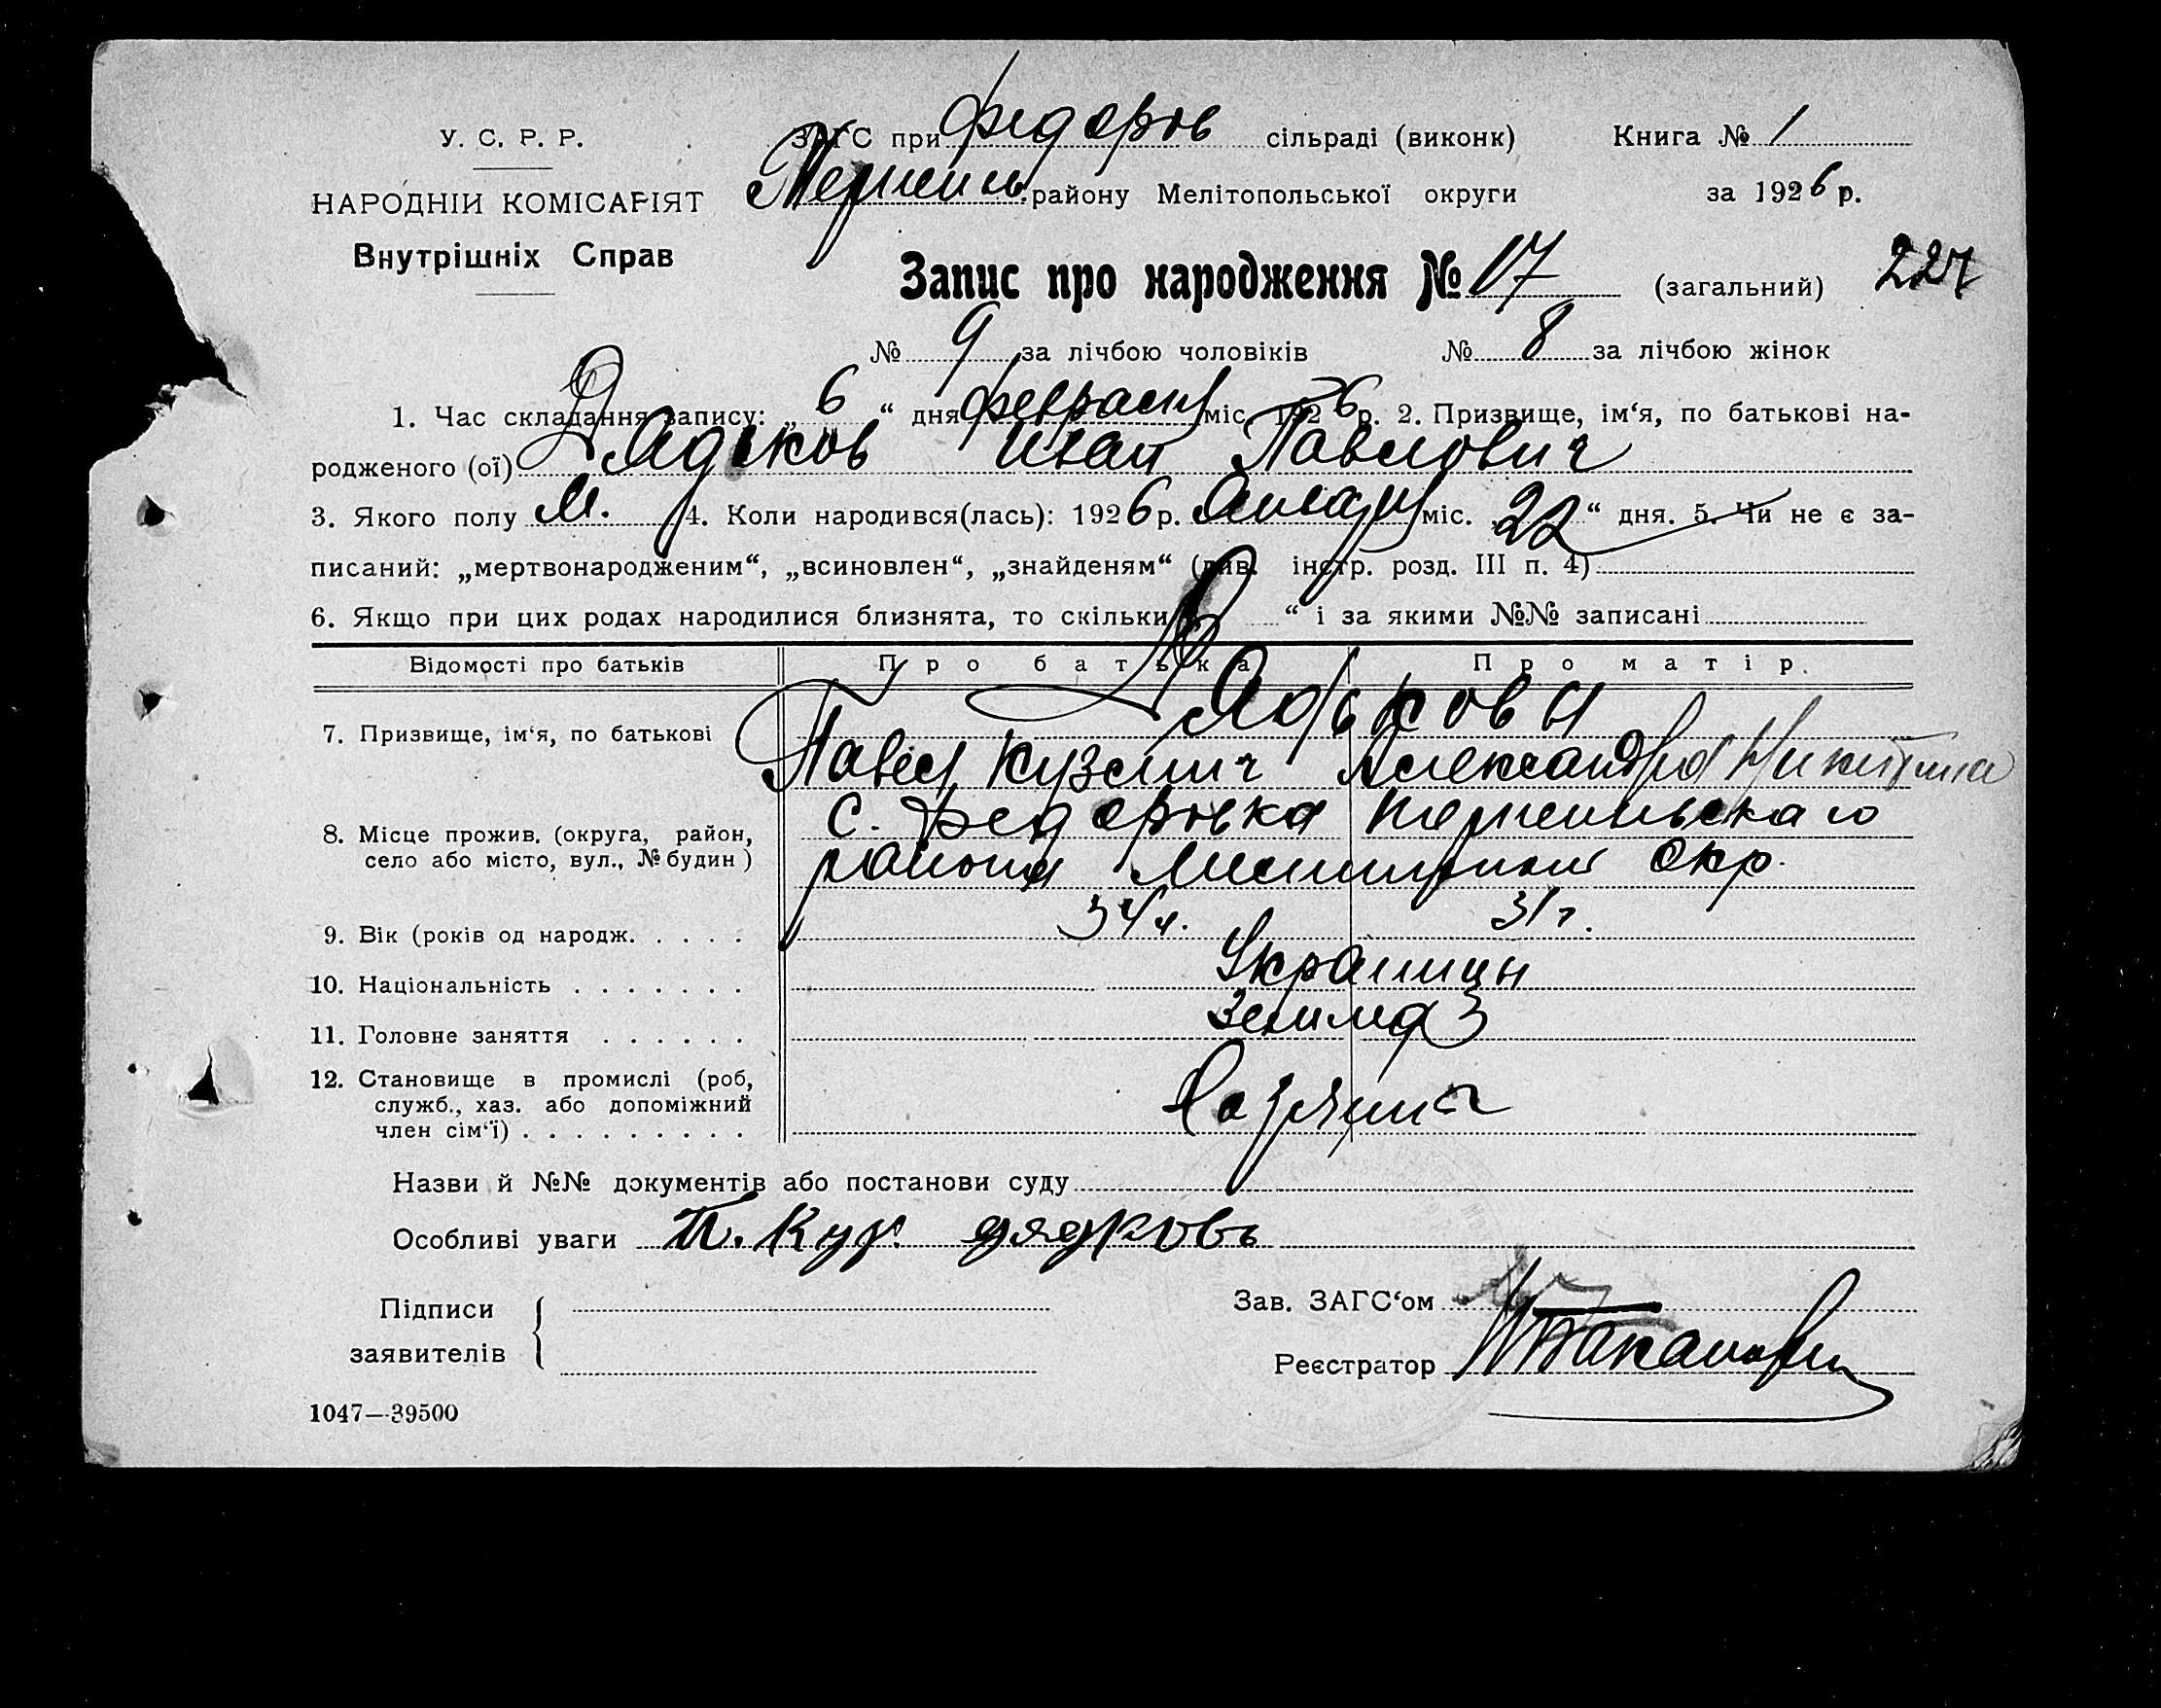 У. С. Р. Р.
НАРОДНІЙ КОМІСАРІЯТ
Внутрішніх Справ
ЗАГС при Федоров сільраді (виконк) Книга № 1
району Мелітопольської округи за 1926 р.
Запис про народження № 17 (загальний) 227
№ 9 за лічбою чоловіків № 8 за лічбою жінок
1. Час складання запису: „ 6 “ дня февраля міс. 1926 р. 2. Призвище, ім‘я, по батькові на-
родженого (ої) Дядьков Иван Павлович
3. Якого полу М. 4. Коли народився(лась): 1926 р. Января міс. „ 22 “ дня. 5. Чи не є за-
писаний: „мертвонародженим“, „всиновлен“, „знайденям“ (див. інстр. розд. III п. 4)
6. Якщо при цих родах народилися близнята, то скільки “ і за якими №№ записані
Відомості про батьків Про батька Про матір.
Дядьковы
7. Призвище, ім‘я, по батькові Павел Кузмич Александра Никитична
8. Місце прожив. (округа, район, с. Федоровка
село або місто, вул., № будин) района Окр.
9. Вік (років од народж. . . . . 34 г. 31 г.
10. Національність . . . . . . . Украинцы
11. Головне заняття . . . . . .
12. Становище в промислі (роб,
служб., хаз. або допоміжний
член сім‘ї) . . . . . . . . .
Назви й №№ документів або постанови суду
Особливі уваги П. Куз. дядковъ
Підписи Зав. ЗАГС‘ом
заявителів Реєстратор
1047—39500